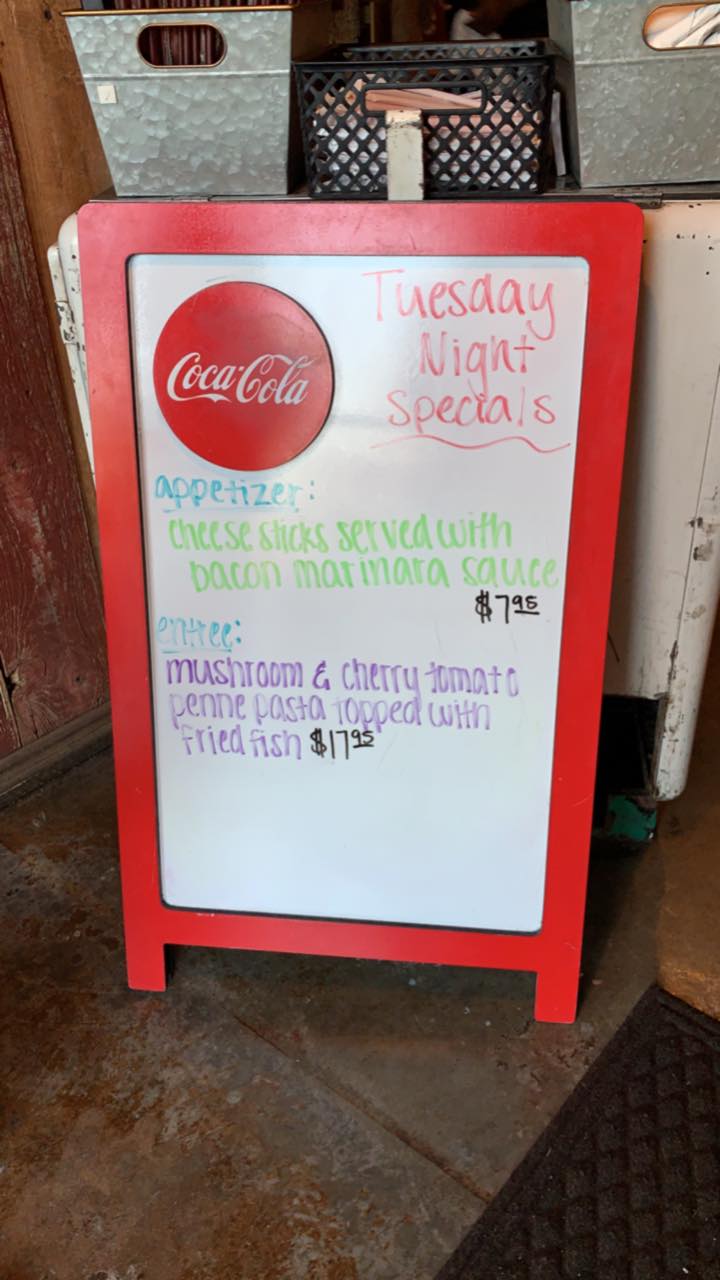 Coca-Cola
Tuesday
Night
Specials
appetizer:
cheese sticks served with
bacon marinara sauce
$7.95
entree:
mushroom & cherry tomato
penne pasta topped with
fried fish $17.95